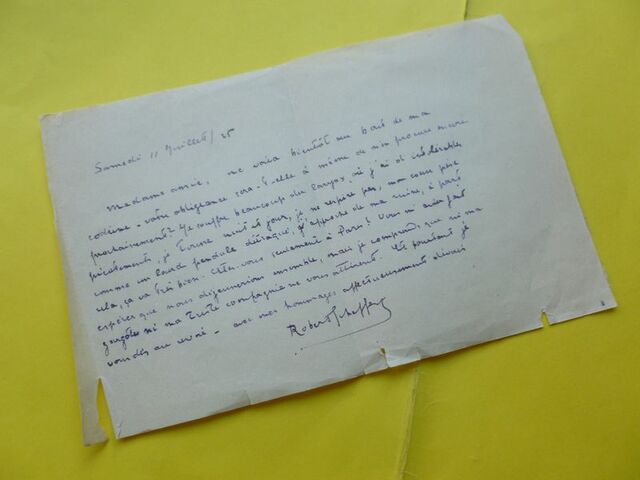 Samedi 11 Juillet / 25
Madame amie, me voici bientôt au bout de ma
codéine - votre obligeance sera-t-elle à même de m'en procurer encore
prochainement? Je souffre beaucoup du larynx, où j'ai d'intolérables
picotements, je tousse nuit et jour, je ne respire pas, mon cœur pèse
comme un lourd pendule détraqué, j'approche de ma ruine, à part
cela, ça va très bien. Êtes-vous seulement à Paris? Vous m'aviez fait
espérer que nous déjeunerions ensemble, mais je comprends que ni ma
gargote ni ma triste compagnie ne vous attirent. Et pourtant je
vous dis au revoir - avec mes hommages affectueusement dévoués
Robert Scheffer